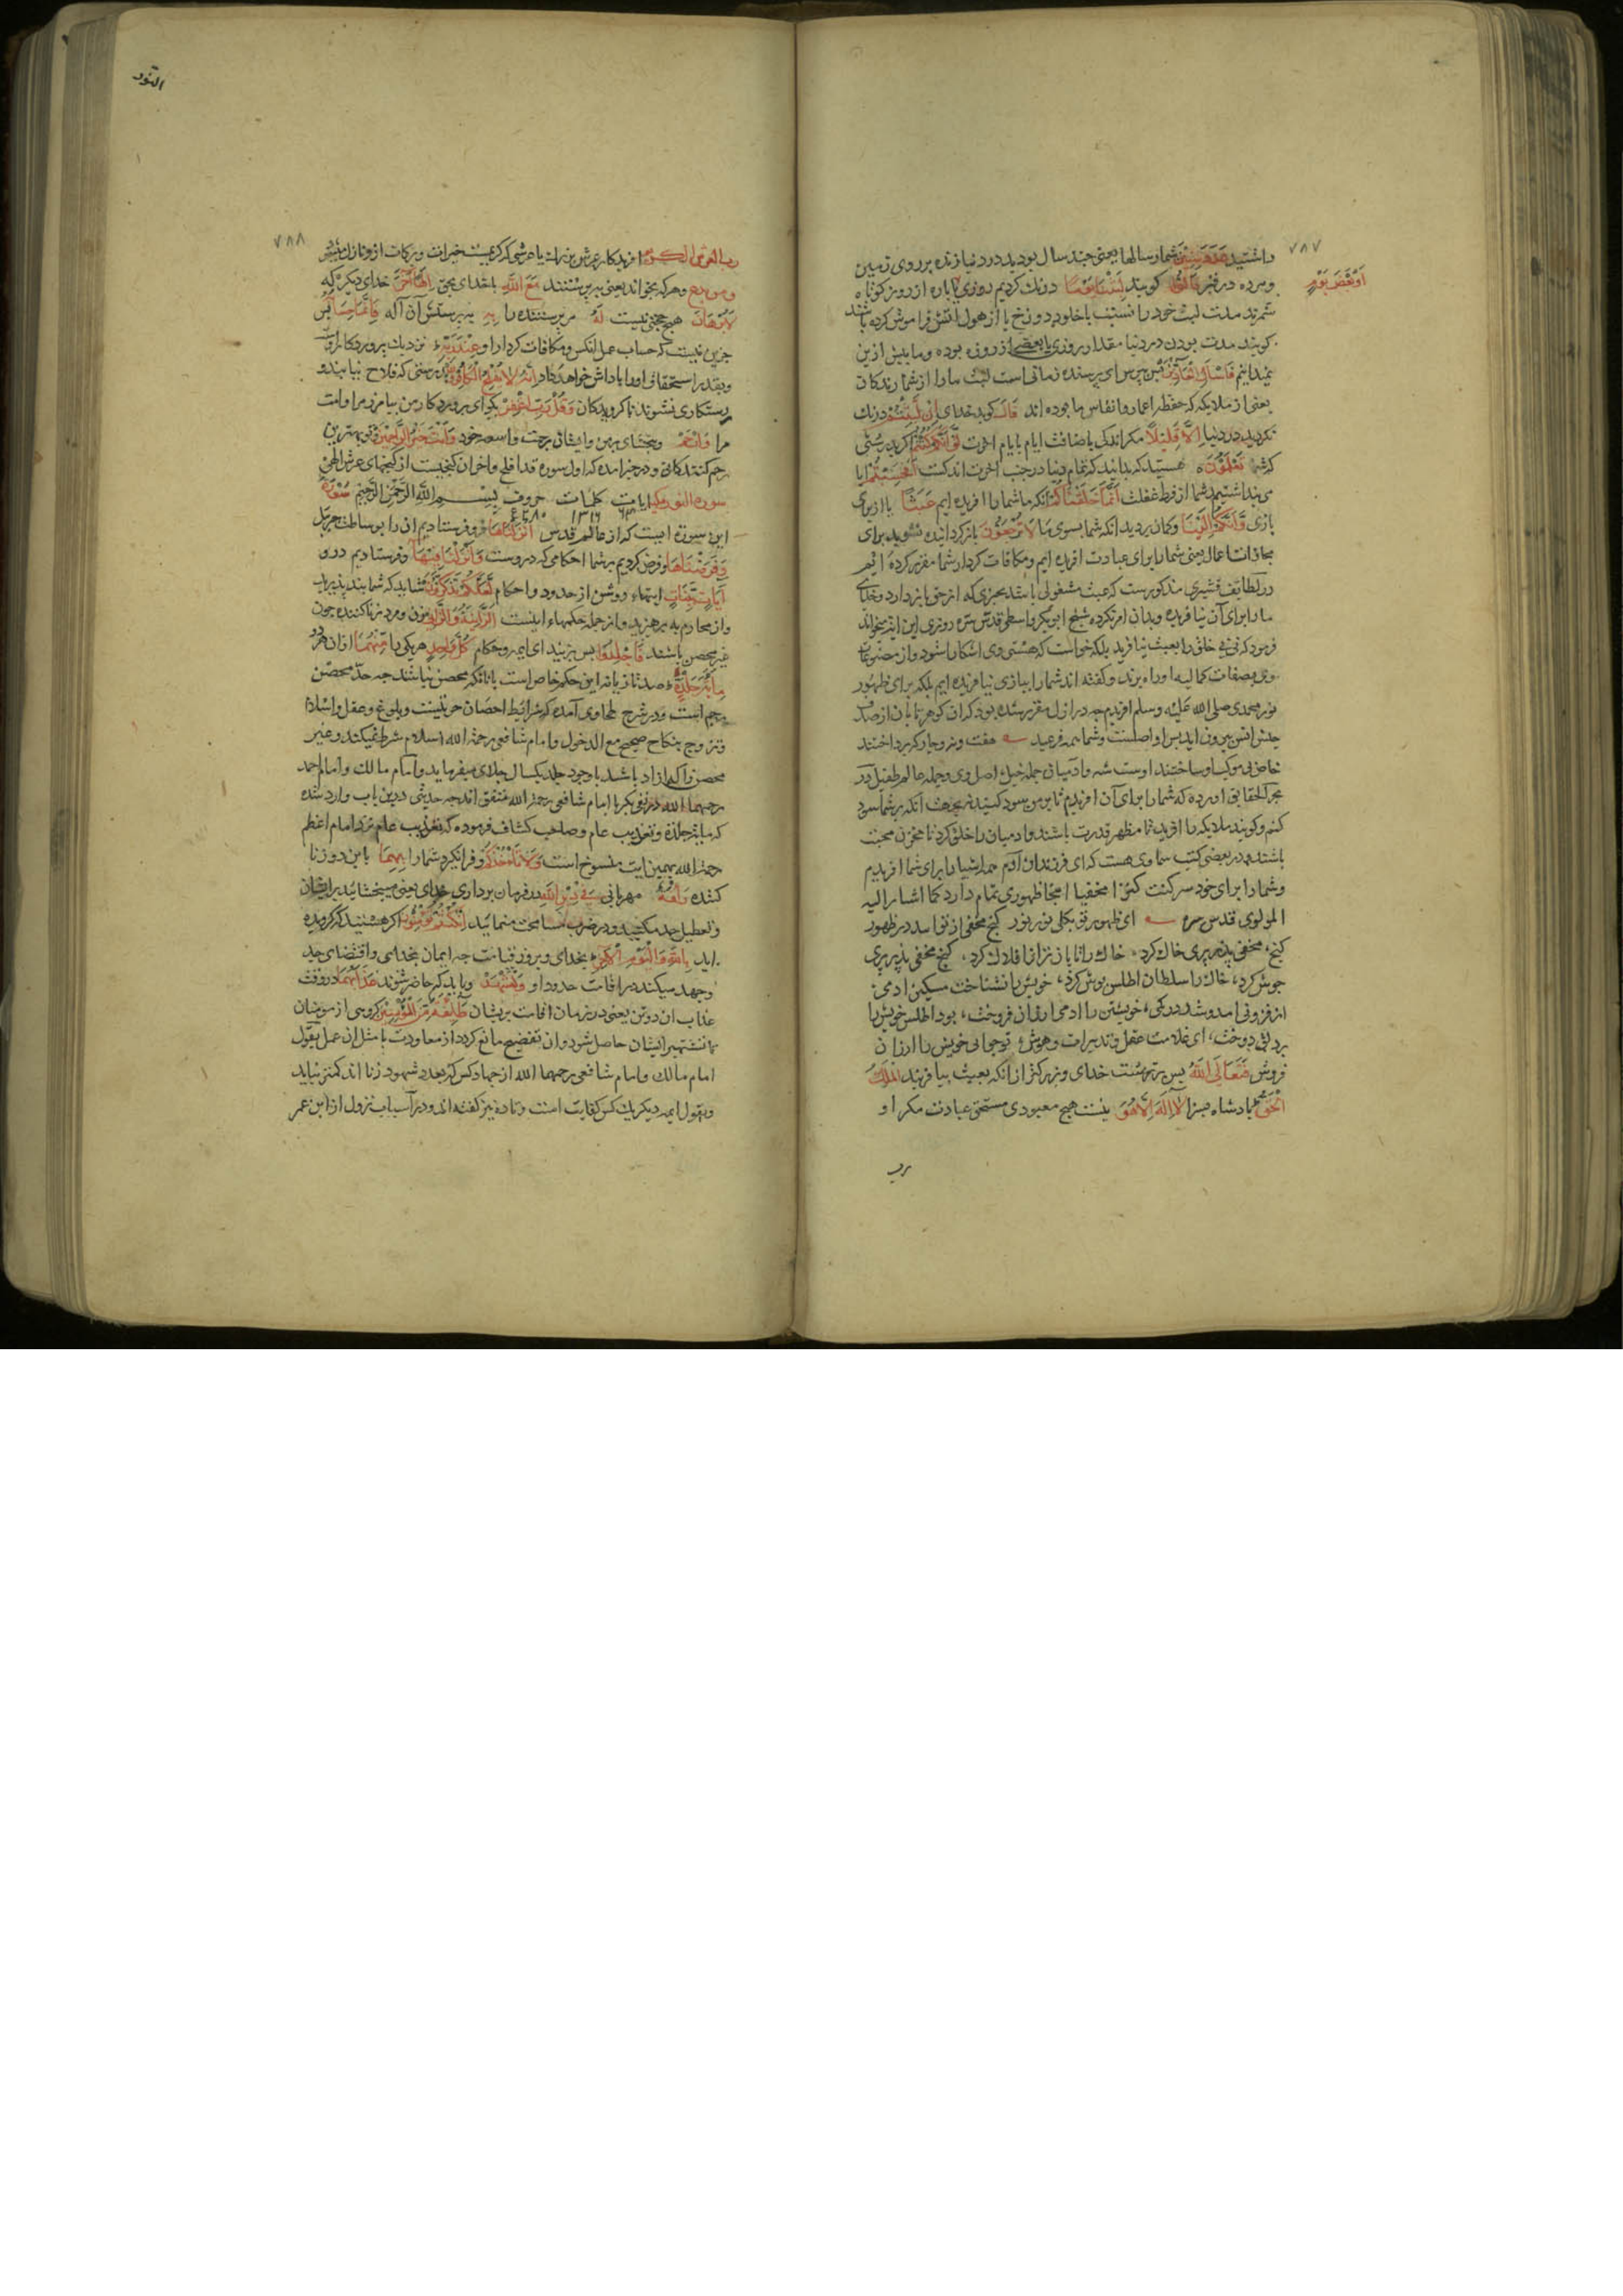 ۷۸۷
داشتید عَدَدَ سِنِینَ شمار سالها یعنی چند سال بودید در دنیا زنده بر روی زمین
اَوْ بَعْضَ یَوْمٍ
ومرده در قبر قَالُوا کویند لَبِثْنَا یَوْمًا درنك کردیم روزی یا پاره از روز کوتاه
شمرند مدت لبث خود را نسبت با خلود دوزخ یا از هول اتش فراموش کرده باشند
کویند مدت بودن در دنیا مقدار روزی یا بعضی از روزه بوده وما بیش ازین
نمیدانیم فَاسْأَلِ الْعَادِّینَ پس بپرس ای پرسنده زمانی است لبث ما را از شمارندکان
یعنی از ملایکه که حفظه اعمار وانفاس ما بوده اند قَالَ کوید خدای اِنْ لَبِثْتُمْ درنك
نکردید در دنیا اِلَّا قَلِیلًا مکر اندکی باضافت ایام بایام اخرت لَوْ اَنَّکُمْ کُنْتُمْ اکر بدرستی
که شما تَعْلَمُونَ هستید که بدانید که تمام دنیا در جنب اخرت اندکست اَفَحَسِبْتُمْ ایا
می پنداشتید شما از فرط غفلت اَنَّمَا خَلَقْنَاکُمْ انکه ما شما را افریده ایم عَبَثًا باازیرای
بازی وَاَنَّکُمْ اِلَیْنَا وکمان بردید انکه شما بسوی ما لَا تُرْجَعُونَ بازکردانیده نشوید برای
مجازات اعمال یعنی شما را برای عبادت افریده ایم ومکافات کردار شما مقرر کرده ایم
در لطایف قشیری مذکورست که عبث مشغولی باشد بچیزی که از حق بازدارد وخدای
ما را برای آن نیافریده وبدان امر نکرده شیخ ابوبکر واسطی قدس سره روزی این ایت میخواند
فرمود که نی نی خلق را بعبث نیافرید بلکه خواست که هستی وی اشکارا شود واز مصنوعات
وی بصفات کمالیه او راه برند وکفته اند شما را ببازی نیافریده ایم بلکه برای ظهور
نور محمدی صلی الله علیه وسلم افریدیم چه در ازل مقرر شده بود که ان کوهر تابان از صدف
جنس انس بیرون اید پس او اصلست وشما همه فرعید هفت ونه وچار که پرداختند
خاص پی موکب او ساختند اوست شه وادمیان جمله خیل اصل وی وجمله عالم طفیل در
بحر الحقایق اورده که شما را برای آن افریدم تا بر من سود کنید نه بجهت انکه بر شما سود
کنم وکویند ملایکه را افرید تا مظهر قدرت باشند وادمیان را خلق کرد تا مخزن محبت
باشند ودر بعضی کتب سماوی هست که ای فرزندان آدم همه اشیا را برای شما افریدیم
وشما را برای خود سر کنت کنزا مخفیا اینجا ظهوری تمام دارد کما اشار الیه
المولوی قدس سره ای ظهور تو بکلی نور نور کنج مخفی از تو امد در ظهور
کنج مخفی بد ز پری خاك کرد خاك را تابان تر از افلاك کرد کنج مخفی بد ز پری
جوش کرد خاك را سلطان اطلس پوش کرد خویش را نشناخت مسکین ادمی
از فزونی امد وشد در کمی خویشتن را ادمی ارزان فروخت بود اطلس خویش را
بر دلق دوخت ای غلامت عقل وتدبیرات وهوش تو چرایی خویش را ارزان
فروش فَتَعَالَی اللّٰهُ پس برترست خدای وبزرکتر از انکه بعبث بیافریند الْمَلِكُ
الْحَقُّ پادشاه سزا لَا اِلٰهَ اِلَّا هُوَ نیست هیچ معبودی مستحق عبادت مکر او
رب
النور
۷۸۸
رَبُّ الْعَرْشِ الْکَرِیمِ افریدکار عرش بزرك یا عرشی که کرمیست خیرات وبرکات ازو نازل میشود
وَمَنْ یَدْعُ وهرکه بخواند یعنی بپرستد مَعَ اللّٰهِ با خدای بحق اِلٰهًا آخَرَ خدای دیکر که
لَا بُرْهَانَ هیچ حجتی نیست لَهُ مر پرستنده را بِهِ بپرستش آن آله فَاِنَّمَا حِسَابُهُ پس
جزین نیست که حساب عمل انکس ومکافات کردار او عِنْدَ رَبِّهِ نزدیك پروردکار اوست
وبقدر استحقاق او را پاداش خواهد داد اِنَّهُ لَا یُفْلِحُ الْکَافِرُونَ بدرستی که فلاح نیابند و
رستکاری نشوند ناکرویدکان وَقُلْ رَبِّ اغْفِرْ بکو ای پروردکار من بیامرز مرا وامت
مرا وَارْحَمْ وببخشای بر من وایشان برحمت واسعه خود وَاَنْتَ خَیْرُ الرَّاحِمِینَ وتو بهترین
رحم کنندکانی ودر خبر امده که اول سوره قد افلح واخر ان کنجیست از کنجهای عرش الهی
سورة النور مکیه ایات کلمات حروف بِسْمِ اللّٰهِ الرَّحْمٰنِ الرَّحِیمِ سُورَةٌ
این سوره ایست که از عالم قدس اَنْزَلْنَاهَا فروفرستادیم ان را بوساطت جبریل
وَفَرَضْنَاهَا وفرض کردیم بر شما احکامی که دروست وَاَنْزَلْنَا فِیهَا وفرستادیم درو
آیَاتٍ بَیِّنَاتٍ ایتهاء روشن از حدود واحکام لَعَلَّکُمْ تَذَکَّرُونَ شاید که شما پند پذیرید
واز محارم بپرهیزید واز جمله حکمهاء اینست الزَّانِیَةُ وَالزَّانِی زن ومرد زنا کننده چون
غیر محصن باشند فَاجْلِدُوا پس بزنید ای ایمه وحکام کُلَّ وَاحِدٍ هر یکی را مِنْهُمَا ازان هر دو
مِائَةَ جَلْدَةٍ صد تازیانه این حکم خاص است بانانکه محصن نباشند چه حد محصن
رجم است ودر شرح طحاوی آمده که شرایط احصان حریتست وبلوغ وعقل واسلام
وتزوج بنکاح صحیح مع الدخول وامام شافعی رحمة الله اسلام شرط نمیکند وغیر
محصن اکر ازاد باشد باوجود جلد یکسال جلای میفرماید وامام مالك وامام احمد
رحمهما الله در نفی بکر با امام شافعی رحمة الله متفق اند چه حدیثی درین باب وارد شده
که مایة جلدة وتغریب عام وصاحب کشاف فرموده که تغریب عام نزد امام اعظم
رحمة الله بهمین ایت منسوخ است وَلَا تَأْخُذْکُمْ وفرا نکیرد شما را بِهِمَا باین دو زنا
کننده رَأْفَةٌ مهربانی فِی دِینِ اللّٰهِ در فرمان برداری خدای یعنی مبخشائید بر ایشان
وتعطیل حد مکنید ودر ضرب مسامحت منمائید اِنْ کُنْتُمْ تُؤْمِنُونَ اکر هستید که کرویده
اید بِاللّٰهِ وَالْیَوْمِ الْآخِرِ بخدای وبروز قیامت چه ایمان بخدای واقتضای جد
وجهد میکند در اقامت حدود او وَلْیَشْهَدْ وباید که حاضر شوند عَذَابَهُمَا در وقت
عذاب ان دو تن یعنی در زمان اقامت بریشان طَائِفَةٌ مِنَ الْمُؤْمِنِینَ کروهی از مومنان
تا تشهیر ایشان حاصل شود وان تفضیح مانع کردد از معاودت با مثل ان عمل بقول
امام مالك وامام شافعی رحمهما الله از چهار کس که بعدد شهود زنا اند کمتر نباید
وبقول ایمه دیکر یك کس کفایت است وزیاده نیز کفته اند ودر اسباب نزول از ابن عمر